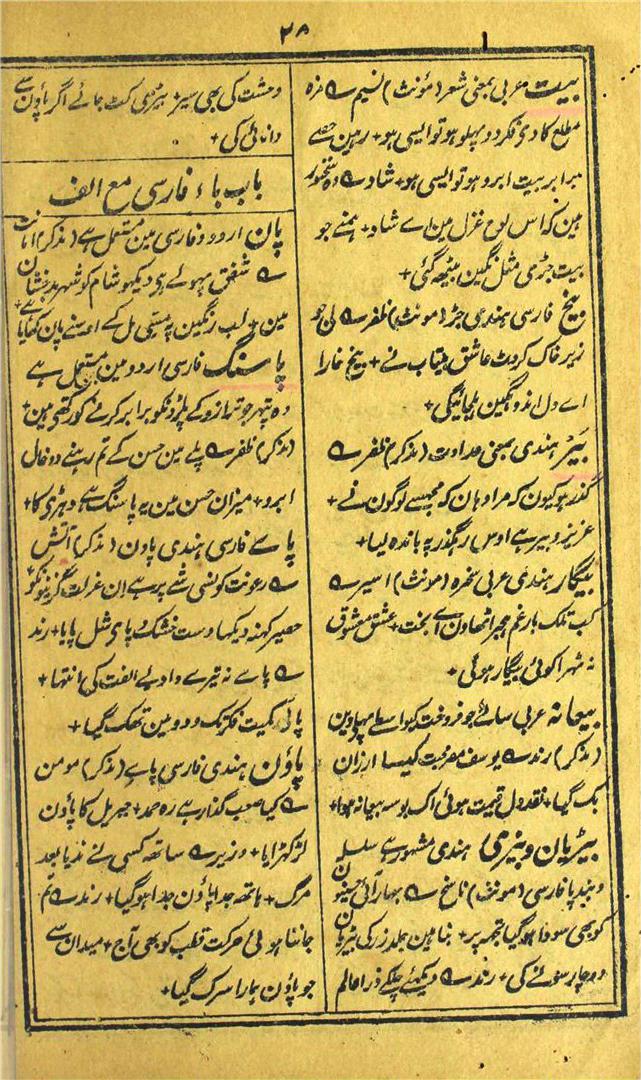 ۲۸
بیت عربی بمعنی شعر (مؤنث) نسیم ے مزہ
مطلع کا دی فکر دو پہلو ہو تو ایسی ہو + رہین حصے
برابر بیت ابرو ہو تو ایسی ہو + شاد ے وہ سخنور
ہین کہ اس لوح غزل مین اے شاد + ہمنے جو
بیت جڑی مثل نگین بیٹھ گئی +
بیخ فارسی ہندی جڑ (مونث) ظفر ے لی جو
زیر خاک کروٹ عاشق بیتاب نے + بیخ خارا
اے دل اندوہگین ہلجائیگی +
بیر ہندی بمعنی عداوت (مذکر) ظفر ے
گذر ہو کیون کہ مرا وہان کہ مجہسے لوگون نے +
عزیز و بیر ہے اوس رہگذر پہ باندہ لیا +
بیگار ہندی عربی سخرہ (مونث) اسیر ے
کب تلک بار غم ہجر اٹھاون اے بخت + عشق معشوق
نہ ٹہرا کوئی بیگار ہوئی +
بیعانہ عربی سائی جو فروخت کیواسطے
(مذکر) رند ے یوسف مصر محبت کیسا ارزان
بک گیا + نقد دل قیمت ہوئی اک بوسہ بیعانہ ہوا +
بیڑیان و بیڑی ہندی مشہور ہے سلسلہ
و بند پا فارسی (مونث) ناسخ ے بہار آئی حسینون
کو بھی سودا ہوگیا تجھ پر + بنا مین جلد زر کی بیڑیان
دو چار سونے کی + رند ے دیکہئے چلکے ذرا عالم
وحشت کی بھی سیر + بیڑی کٹ جائے اگر پاؤن سے
دانائی کی +
باب باء فارسی مع الف
پان اردو و فارسی مین مستعمل ہے (مذکر) امانت
ے شفق پہولے ہی دیکہو شام کو شہر بدخشان
مین + لب رنگین پہ مسی مل کے اوسنے پان کہایا ہے +
پاسنگ فارسی اردو مین مستعمل ہے
وہ پتہر جو ترازو کے پلڑونکو برابر کرنے کو رکہتی ہین +
(مذکر) ظفر ے پلے مین حسن کے تم رہنے دو خال
ابرو + میزان حسن مین یہ پاسنگ ہے دہڑی کا +
پاے فارسی ہندی پاون (مذکر) آتش
ے رعونت کونسی شے پر ہے ان عزلت گزینونکو +
حصیر کہنہ دیکہا دست خشک و پای شل پایا + رند
ے پاے نہ تیرے وادئے الفت کی انتہا +
پائی کمیت فکر تک و دو مین تھک گیا +
پاؤن ہندی فارسی پاے (مذکر) مومن
ے کیا صعب گذار ہے رہ حمد + جبریل کا پاؤن
لڑکہڑایا + وزیر ے ساتھ کسی نے ندیا بعد
مرگ + ہاتھ جدا پاؤن جدا ہوگیا + رند ے تم
جاننا ہوئی حرکت قطب کو بھی آج + میدان سے
جو پاؤن ہمارا سرک گیا +